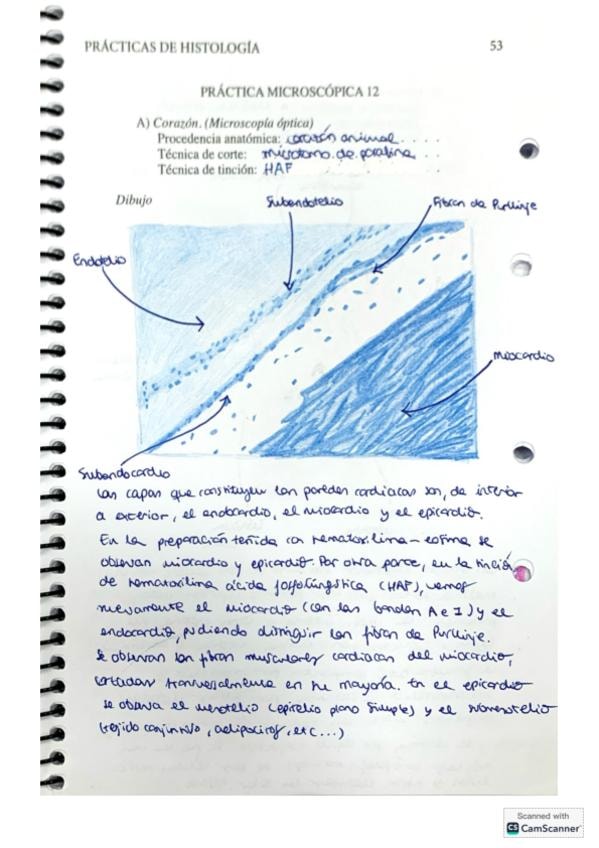 PRÁCTICAS DE HISTOLOGÍA
53
PRÁCTICA MICROSCÓPICA 12
A) Corazón. (Microscopía óptica)
Procedencia anatómica: corazón animal
Técnica de corte: microtomo de parafina
Técnica de tinción: HAF
Dibujo
Subendotelio
Fibras de Purkinje
Endotelio
Miocardio
Subendocardio
Las capas que constituyen las paredes cardiacas son, de interior
a exterior, el endocardio, el miocardio y el epicardio.
En la preparación teñida con hematoxilina-eosina se
observan miocardio y epicardio. Por otra parte, en la tinción
de hematoxilina ácida fosfotúngstica (HAF), vemos
nuevamente el miocardio (con las bandas A e I) y el
endocardio, pudiendo distinguir las fibras de Purkinje.
Se observan las fibras musculares cardiacas del miocardio,
cortadas transversalmente en su mayoría. En el epicardio
se observa el mesotelio (epitelio plano simple) y el submesotelio
(tejido conjuntivo, adipocitos, etc...)
Scanned with
CS CamScanner